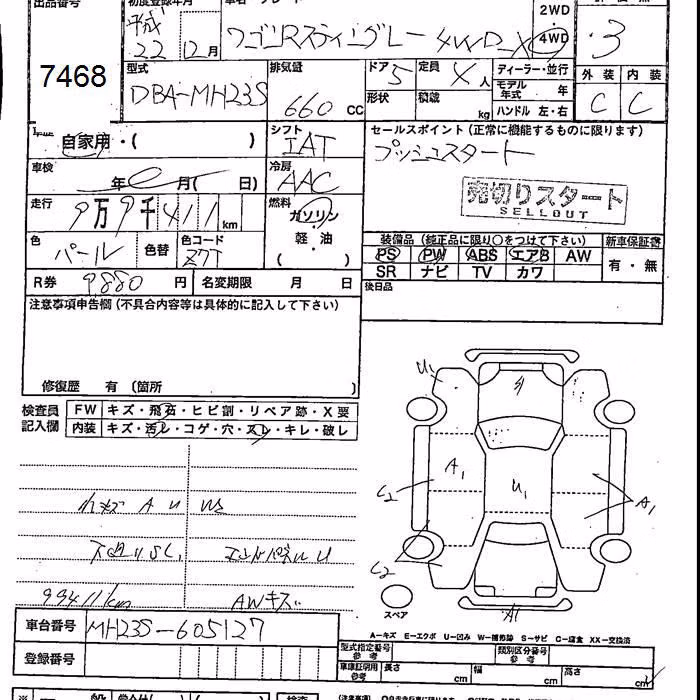 出品番号 初度登録年月
7468
平成 22 12月
ワゴンRスティングレー 4WD X
2WD
4WD
3
型式 DBA-MH23S
排気量 660 CC
ドア 5
定員 4人
形状
積載 kg
ディーラー・並行
モデル年式 年
ハンドル 左・右
外装 内装
C C
自家用・( )
シフト IAT
セールスポイント(正常に機能するものに限ります)
プッシュスタート
車検 年 月( 日)
冷房 AAC
売切りスタート
SELLOUT
走行 9万9千411km
燃料 ガソリン
軽・油
( )
色 パール
色替
色コード Z7T
装備品(純正品に限り○をつけて下さい)
新車保証書
PS PW ABS エアB AW
SR ナビ TV カワ
有・無
R券 9,880 円
名変期限 月 日
後日品
注意事項申告欄(不具合内容等は具体的に記入して下さい)
修復歴 有(箇所 )
検査員記入欄
FW キズ・飛石・ヒビ割・リペア跡・X要
内装 キズ・汚レ・コゲ・穴・スレ・キレ・破レ
U1
A1
U1
C2
A1
C2
A1
スペア
A U W2
下廻りSC1
エンドパネルU
99411km
AWキズ
A-キズ E-エクボ U-凹み W-補修跡 S-サビ C-腐食 XX-交換済
車台番号 MH23S-605127
登録番号
型式指定番号 参考
類別区分番号 参考
車庫証明用 参考 長さ cm 幅 cm 高さ cm